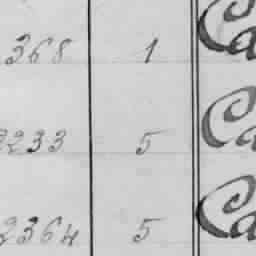 368 1 Ca
2233 5 Ca
2364 5 Ca